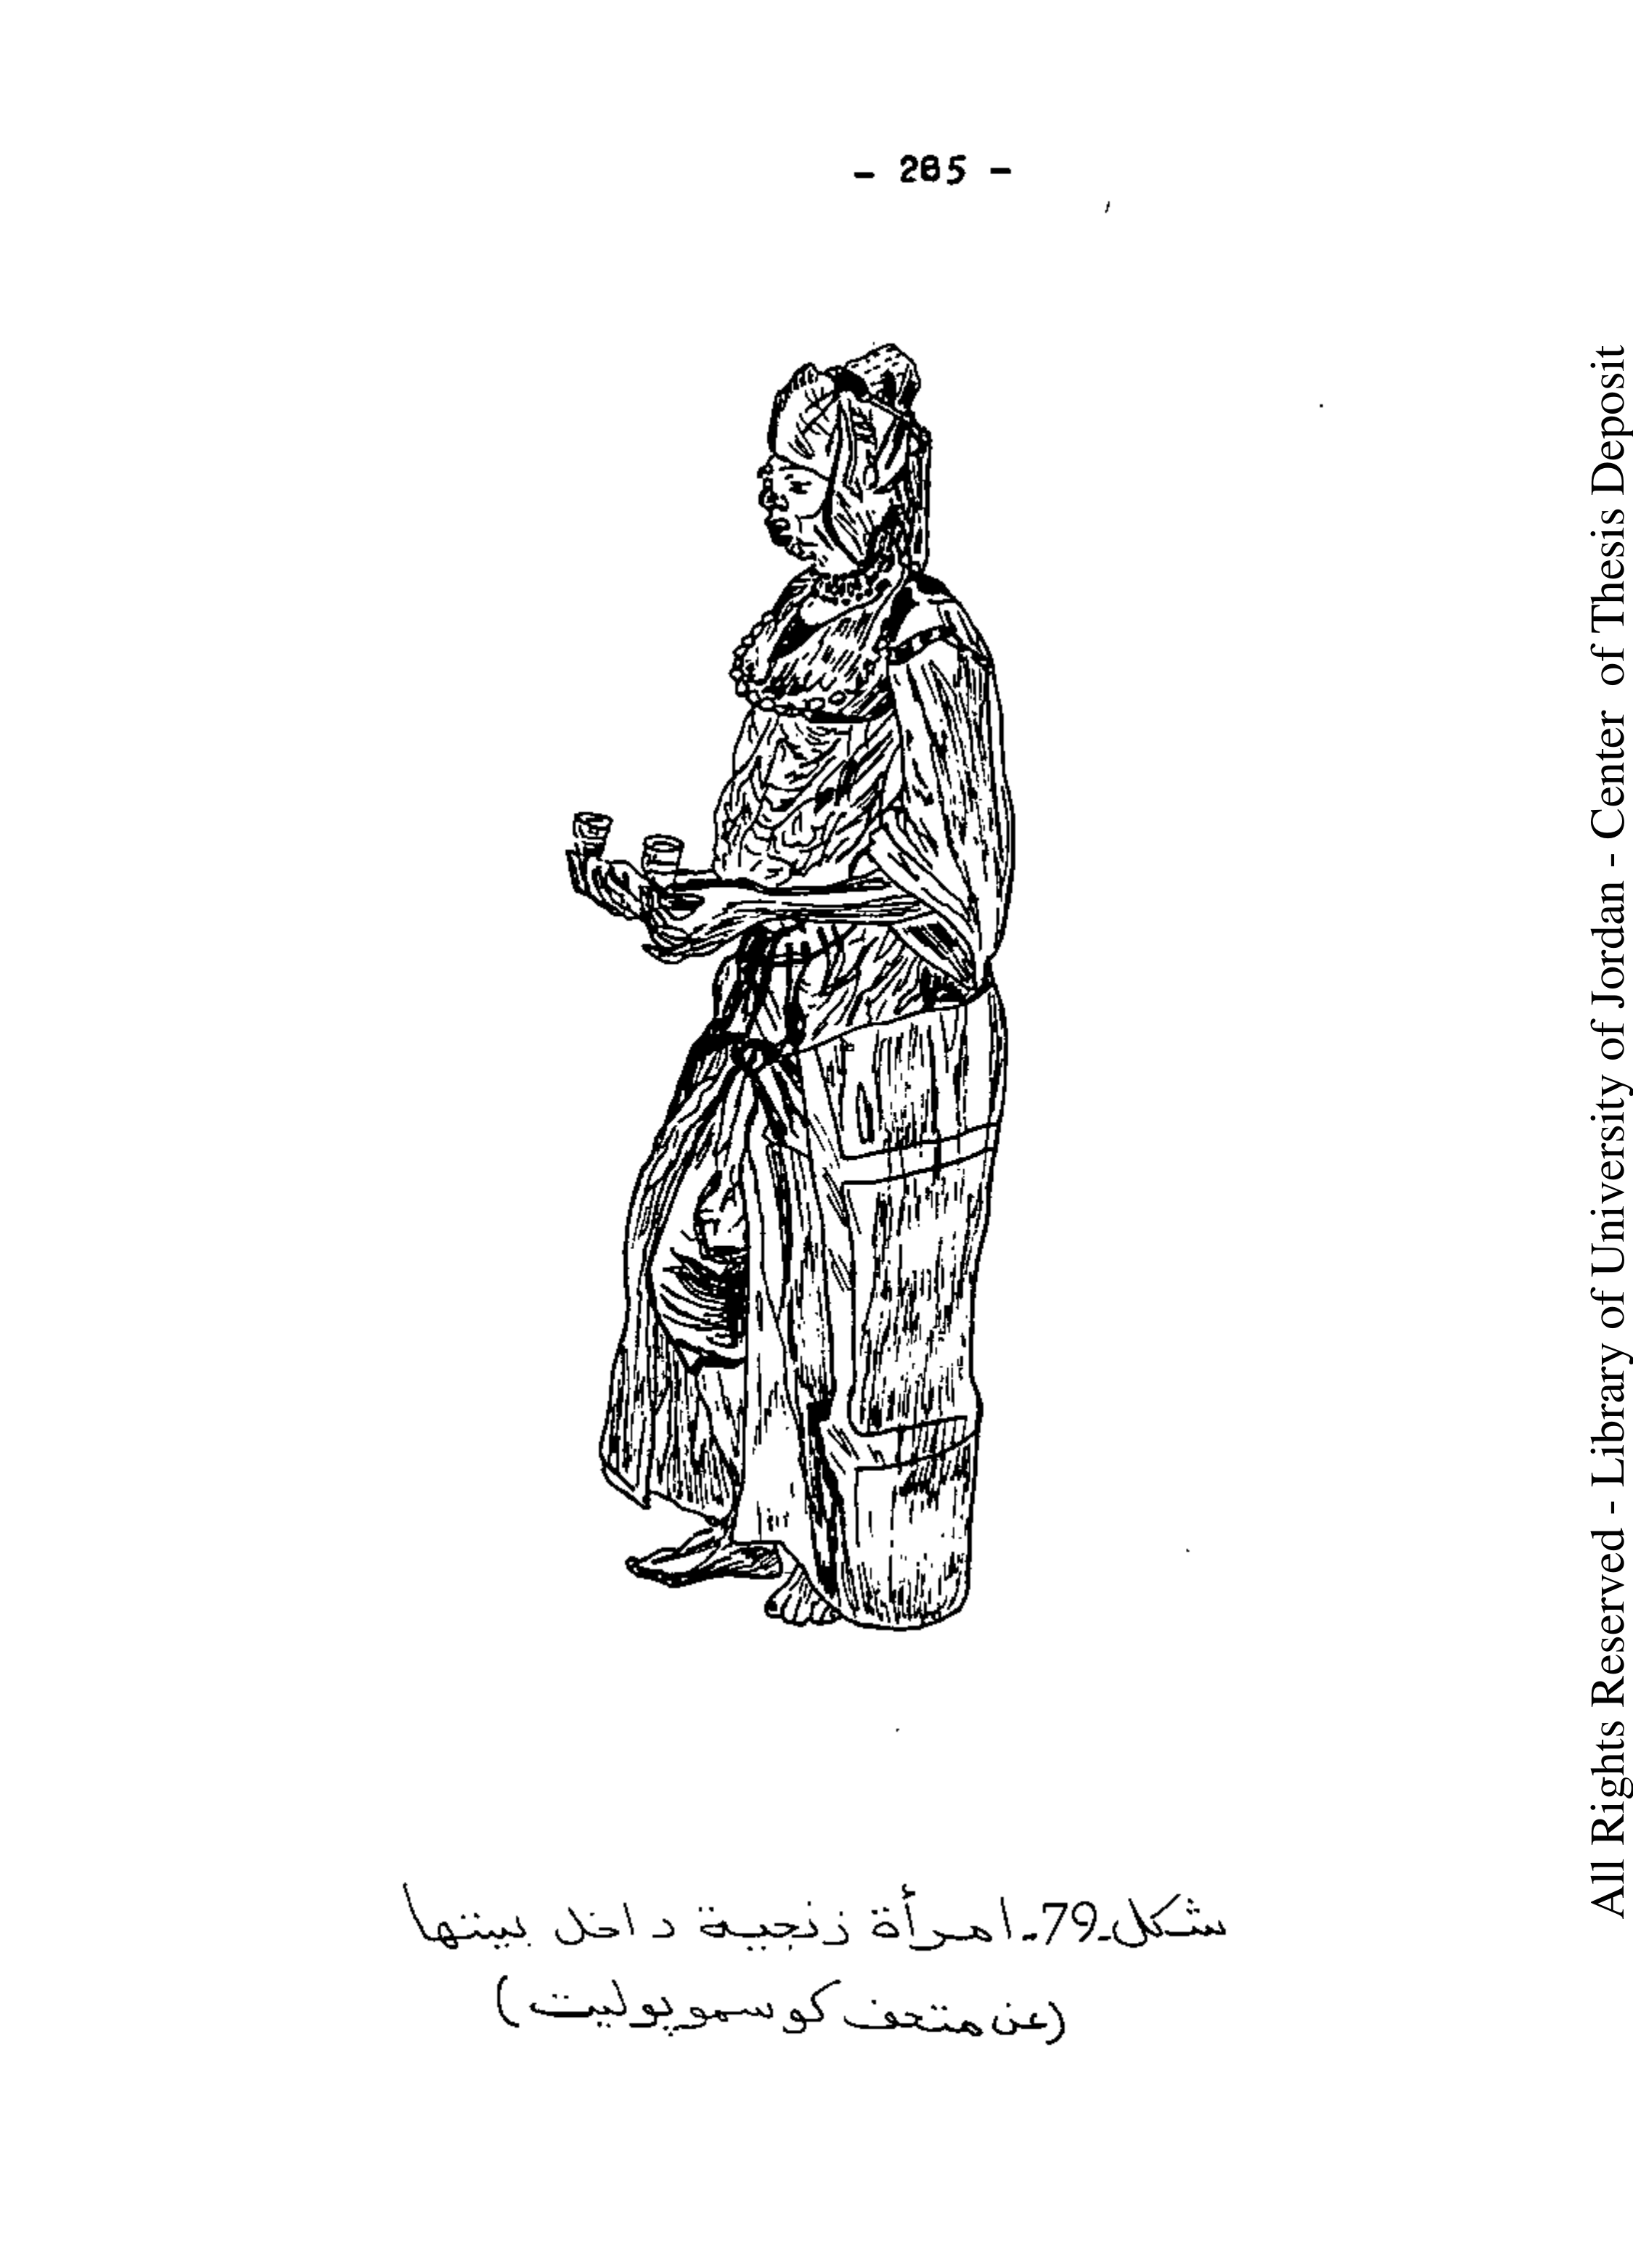 - 285 -
شكل-79-امرأة زنجية داخل بيتها
(عن متحف كوسموبوليت)
All Rights Reserved - Library of University of Jordan - Center of Thesis Deposit